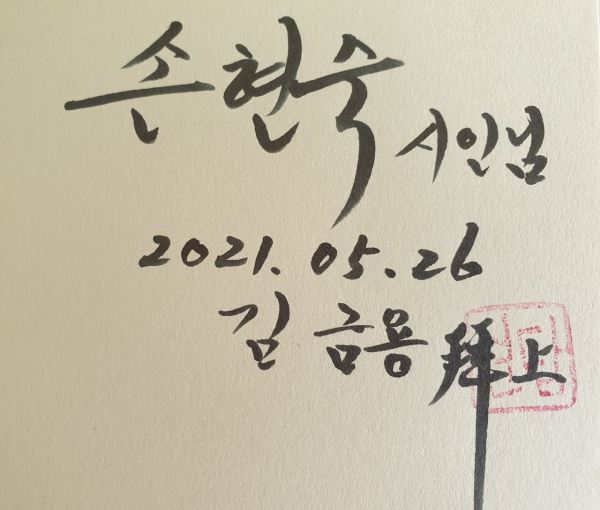 손현숙 시인님
2021.05.26
김금용 拜上